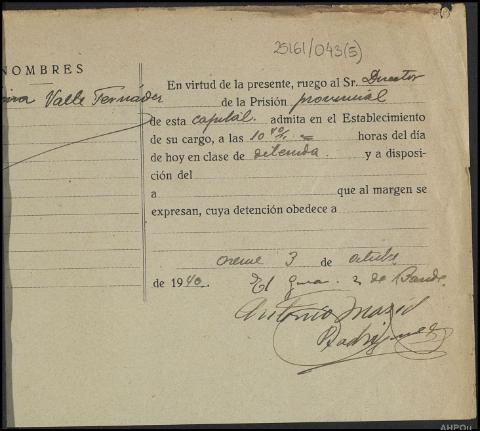 25161/043(5)
NOMBRES
Valle Fernández
En virtud de la presente, ruego al Sr. Director
de la Prisión provincial
de esta capital. admita en el Establecimiento
de su cargo, a las 10 horas del día
de hoy en clase de detenida. y a disposi-
ción del
a que al margen se
expresan, cuya detención obedece a
Orense 3 de octubre
de 1940.
El de Bande
Antonio
Rodríguez
AHPOu